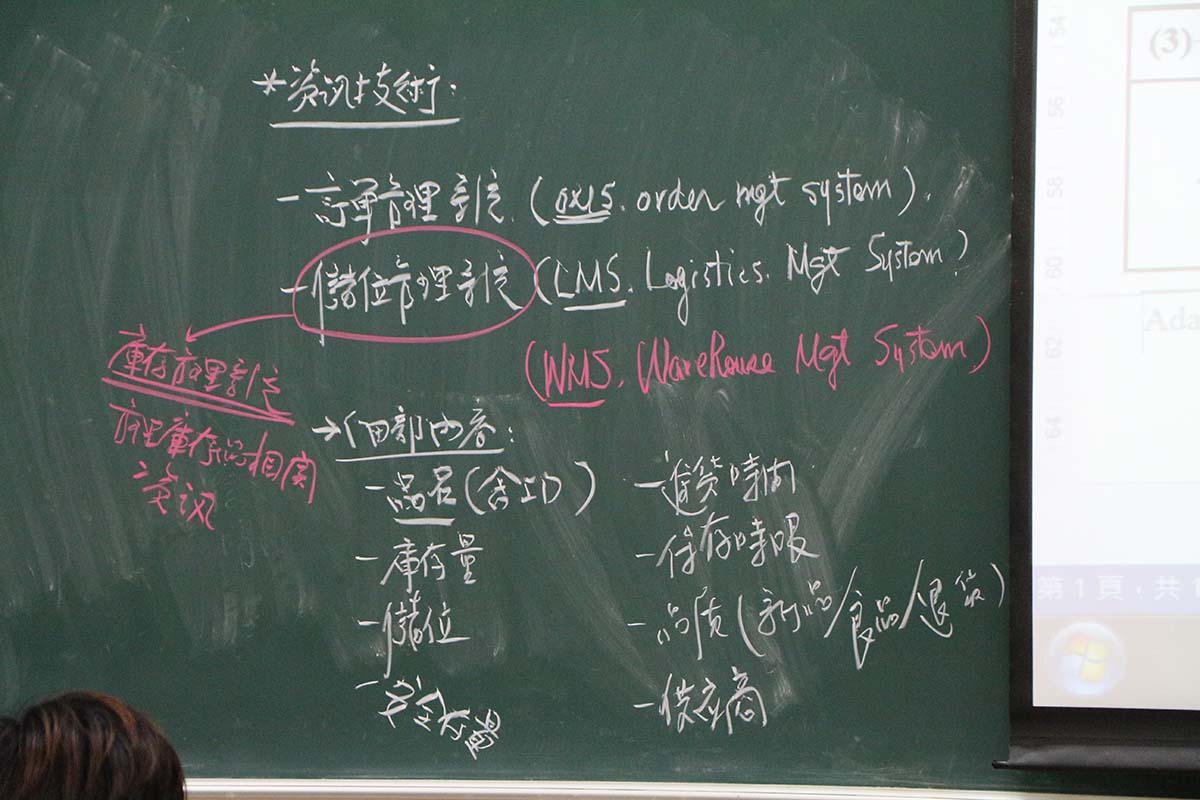 *資訊技術:
-訂單管理系統 (OMS. order mgt system).
-儲位管理系統 (LMS. Logistics. Mgt System)
(WMS. WareHouse Mgt System)
庫存管理系統
管理庫存品相關
資訊
→細部內容:
-品名(含ID)
-庫存量
-儲位
-安全存量
-進貨時間
-保存時限
-品質(新品/良品/退貨)
-供應商
(3)
54
56
58
60
62
64
Ada
第1頁,共1